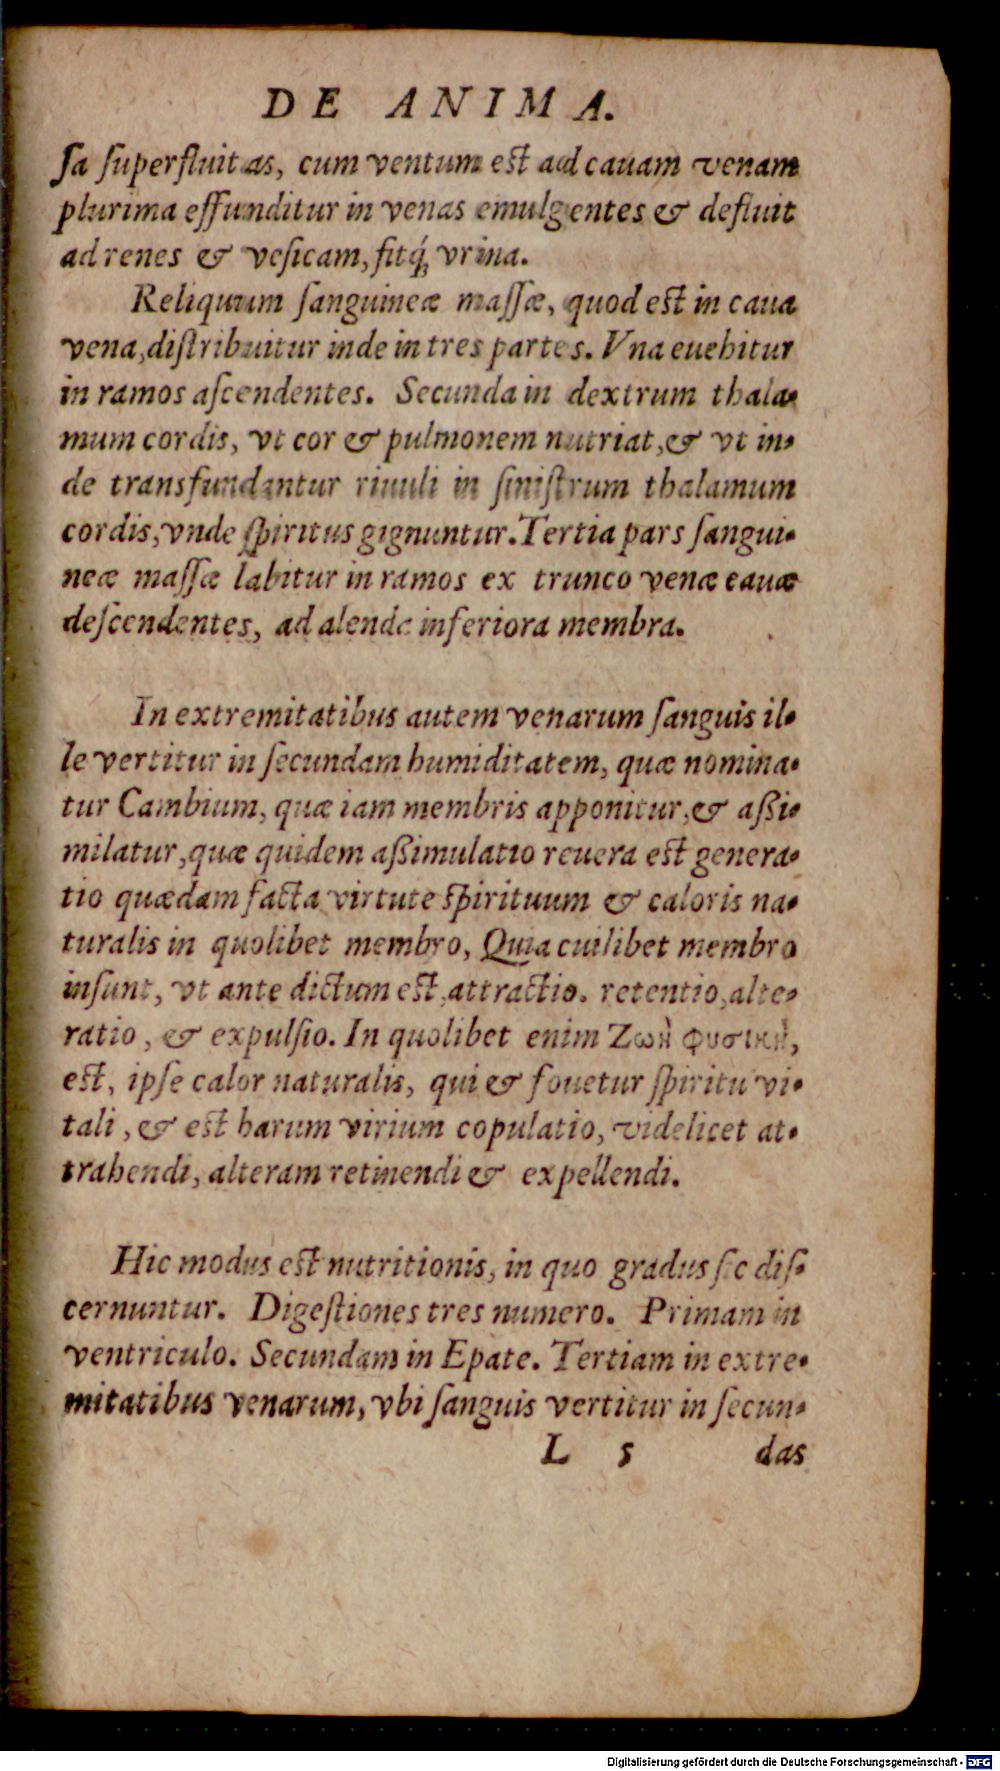 DE ANIMA.
ſa ſuperfluitas, cum ventum eſt ad cauam venam
plurima effunditur in venas emulgentes & defluit
ad renes & veſicam, fitq́; vrina.
Reliquum ſanguineæ maſſæ, quod eſt in caua
vena, diſtribuitur inde in tres partes. Vna euehitur
in ramos aſcendentes. Secunda in dextrum thala-
mum cordis, vt cor & pulmonem nutriat, & vt in-
de transfundantur riuuli in ſiniſtrum thalamum
cordis, vnde ſpiritus gignuntur. Tertia pars ſangui-
neæ maſſæ labitur in ramos ex trunco venæ cauæ
deſcendentes, ad alenda inferiora membra.
In extremitatibus autem venarum ſanguis il-
le vertitur in ſecundam humiditatem, quæ nomina-
tur Cambium, quæ iam membris apponitur, & aßi-
milatur, quæ quidem aßimulatio reuera eſt genera-
tio quædam facta virtute ſpirituum & caloris na-
turalis in quolibet membro, Quia cuilibet membro
inſunt, vt ante dictum eſt, attractio. retentio, alte-
ratio, & expulſio. In quolibet enim Ζωὴ φυσικὴ,
eſt, ipſe calor naturalis, qui & fouetur ſpiritu vi-
tali, & eſt harum virium copulatio, videlicet at-
trahendi, alteram retinendi & expellendi.
Hic modus eſt nutritionis, in quo gradus ſic diſ-
cernuntur. Digeſtiones tres numero. Primam in
ventriculo. Secundam in Epate. Tertiam in extre-
mitatibus venarum, vbi ſanguis vertitur in ſecun-
L 5 das
Digitalisierung gefördert durch die Deutsche Forschungsgemeinschaft - DFG